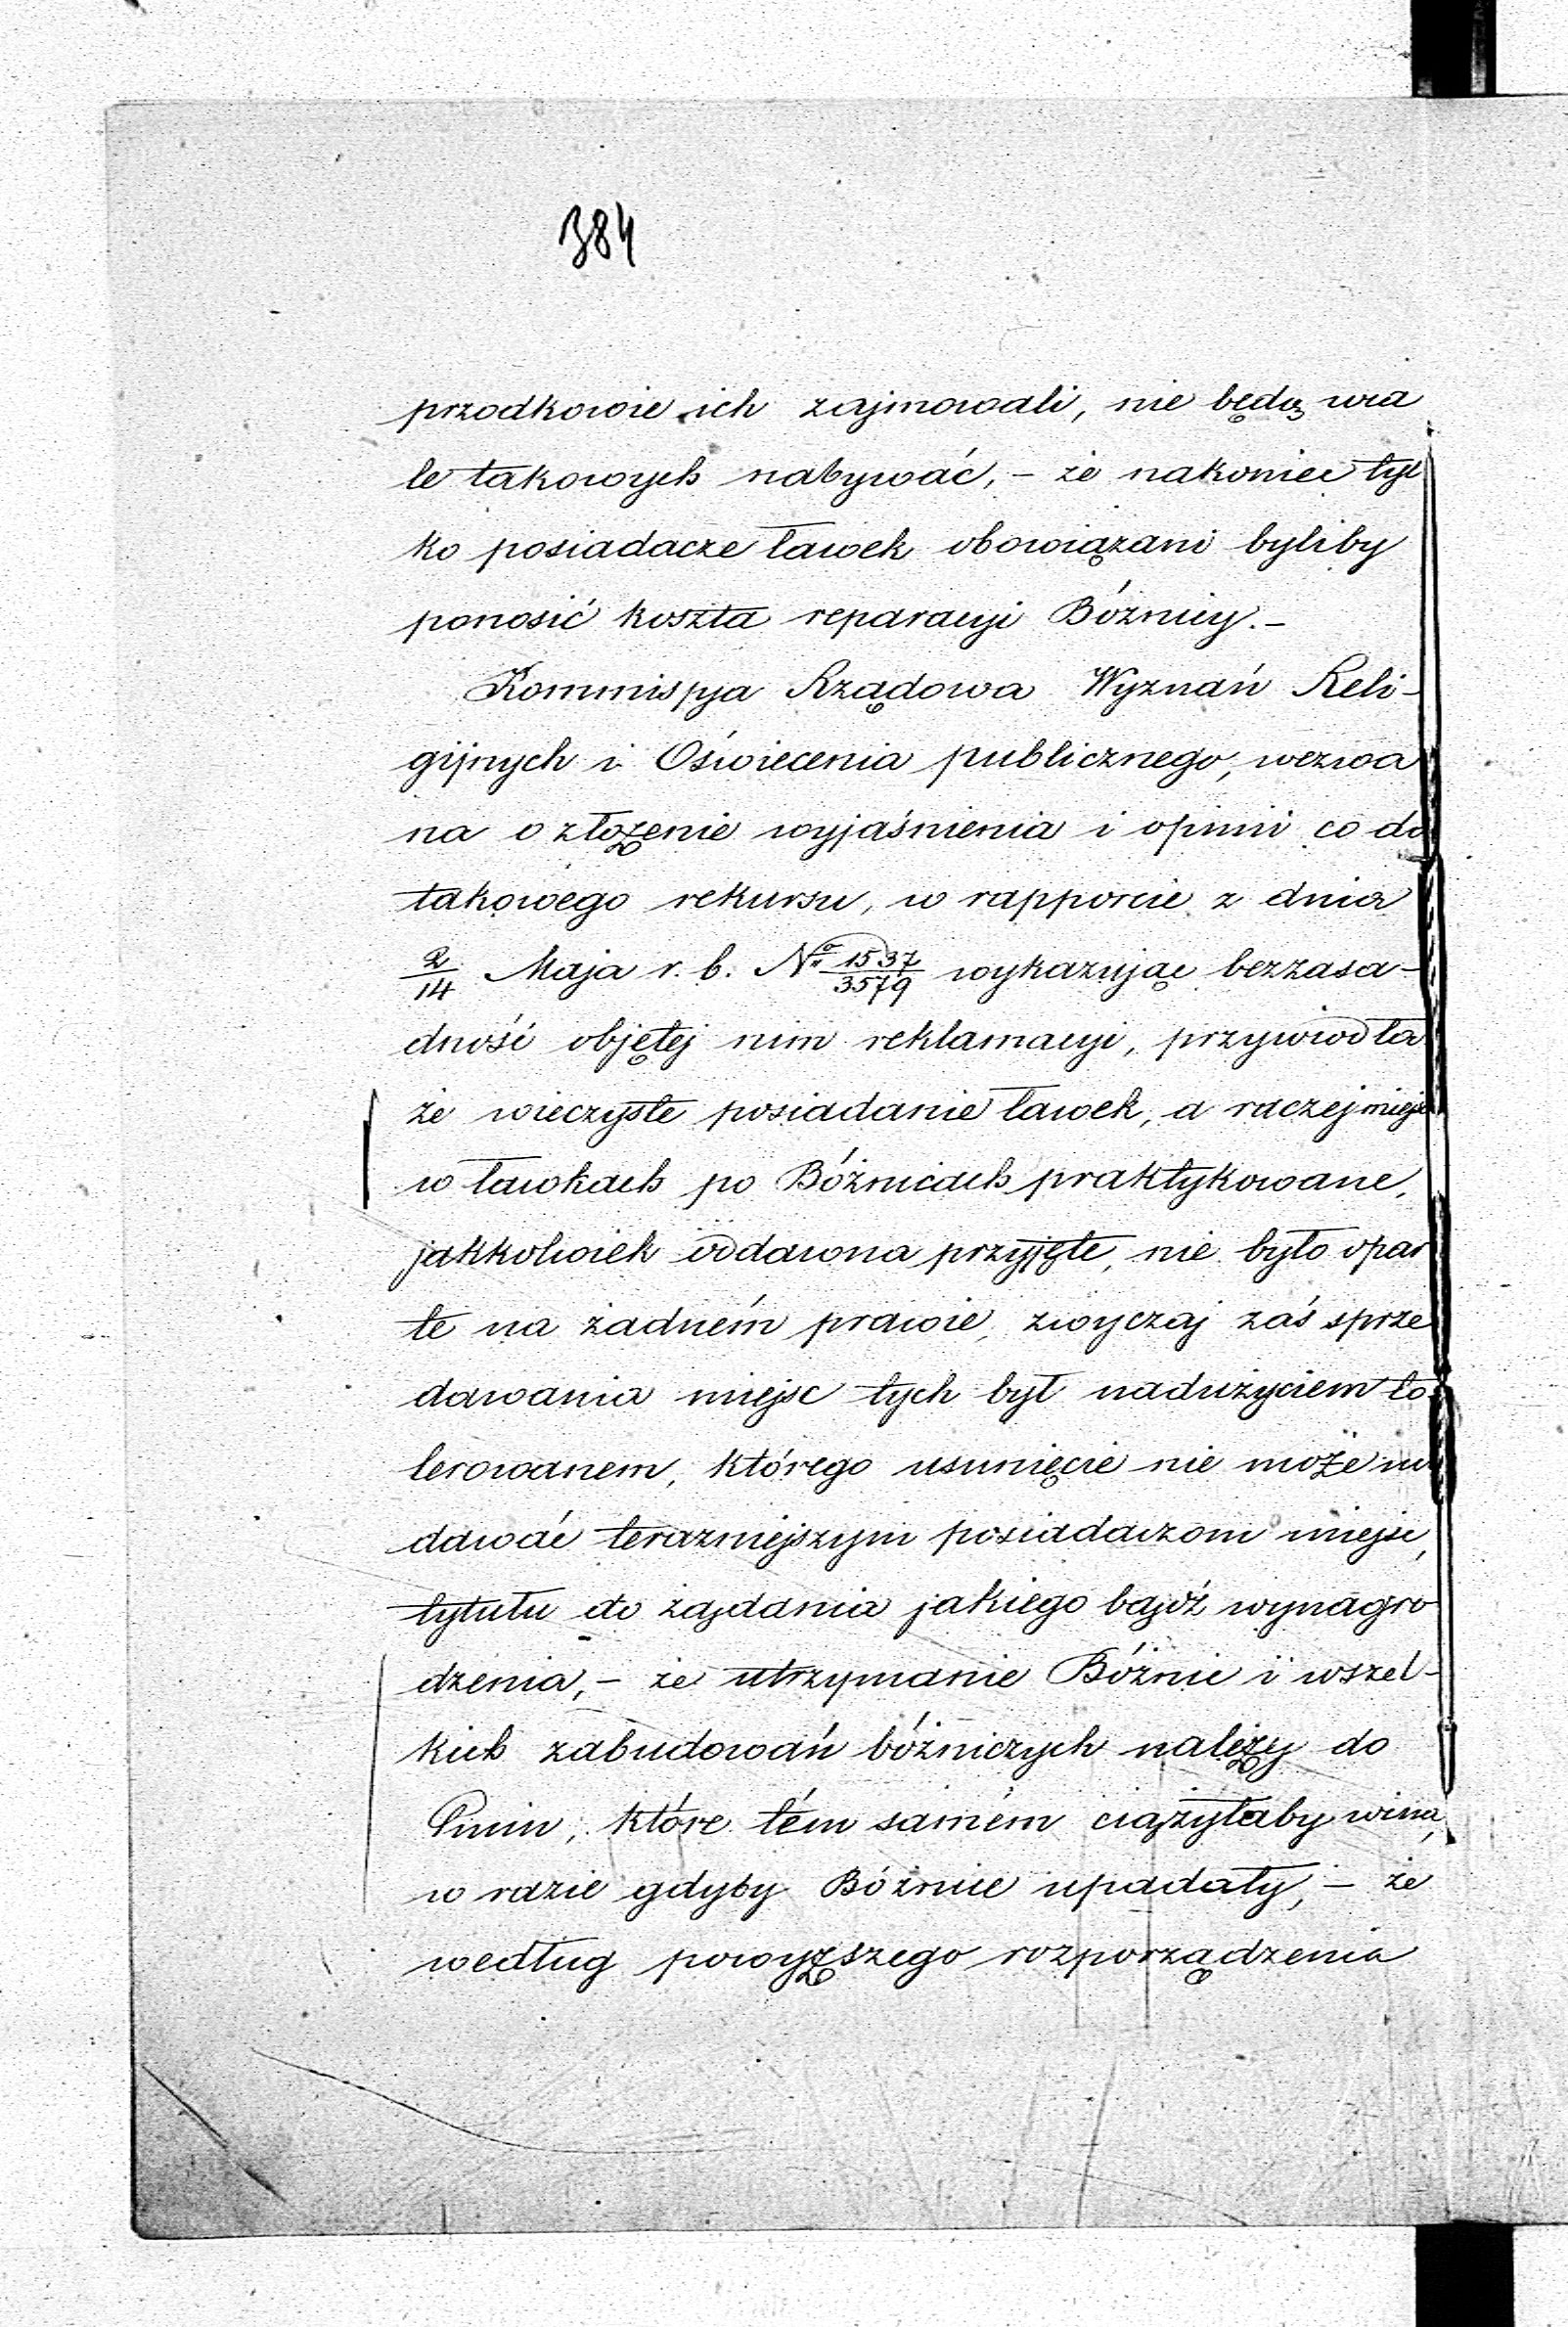 384
przodkowie ich zajmowali, nie będą wca
le takowych nabywać, – że nakoniec tyl
ko posiadacze ławek obowiązani byliby
ponosić koszta reparacyi Bóżnicy. –
Kommissya Rządowa Wyznań Reli-
gijnych i Oświecenia publicznego, wezwa
na o złożenie wyjaśnienia i opinii co do
takowego rekursu, w rapporcie z dnia
2/14 Maja r. b. No 1537/3579 wykazując bezzasa-
dność objętej nim reklamacyi, przywiodła
że wieczyste posiadanie ławek, a raczej miejsc
w ławkach po Bóżnicach praktykowane,
jakkolwiek oddawna przyjęte, nie było opar
te na żadném prawie, zwyczaj zaś sprze
dawania miejsc tych był nadużyciem to
lerowanem, którego usunięcie nie może na
dawać terazniejszym posiadaczom miejsc,
tytułu do żądania jakiego bądź wynagro
dzenia, – że utrzymanie Bóżnic i wszel-
kich zabudowań bóżniczych należy do
Gmin, które tém samém ciążyłaby wina,
w razie gdyby Bóżnice upadały, – że
według powyższego rozporządzenia